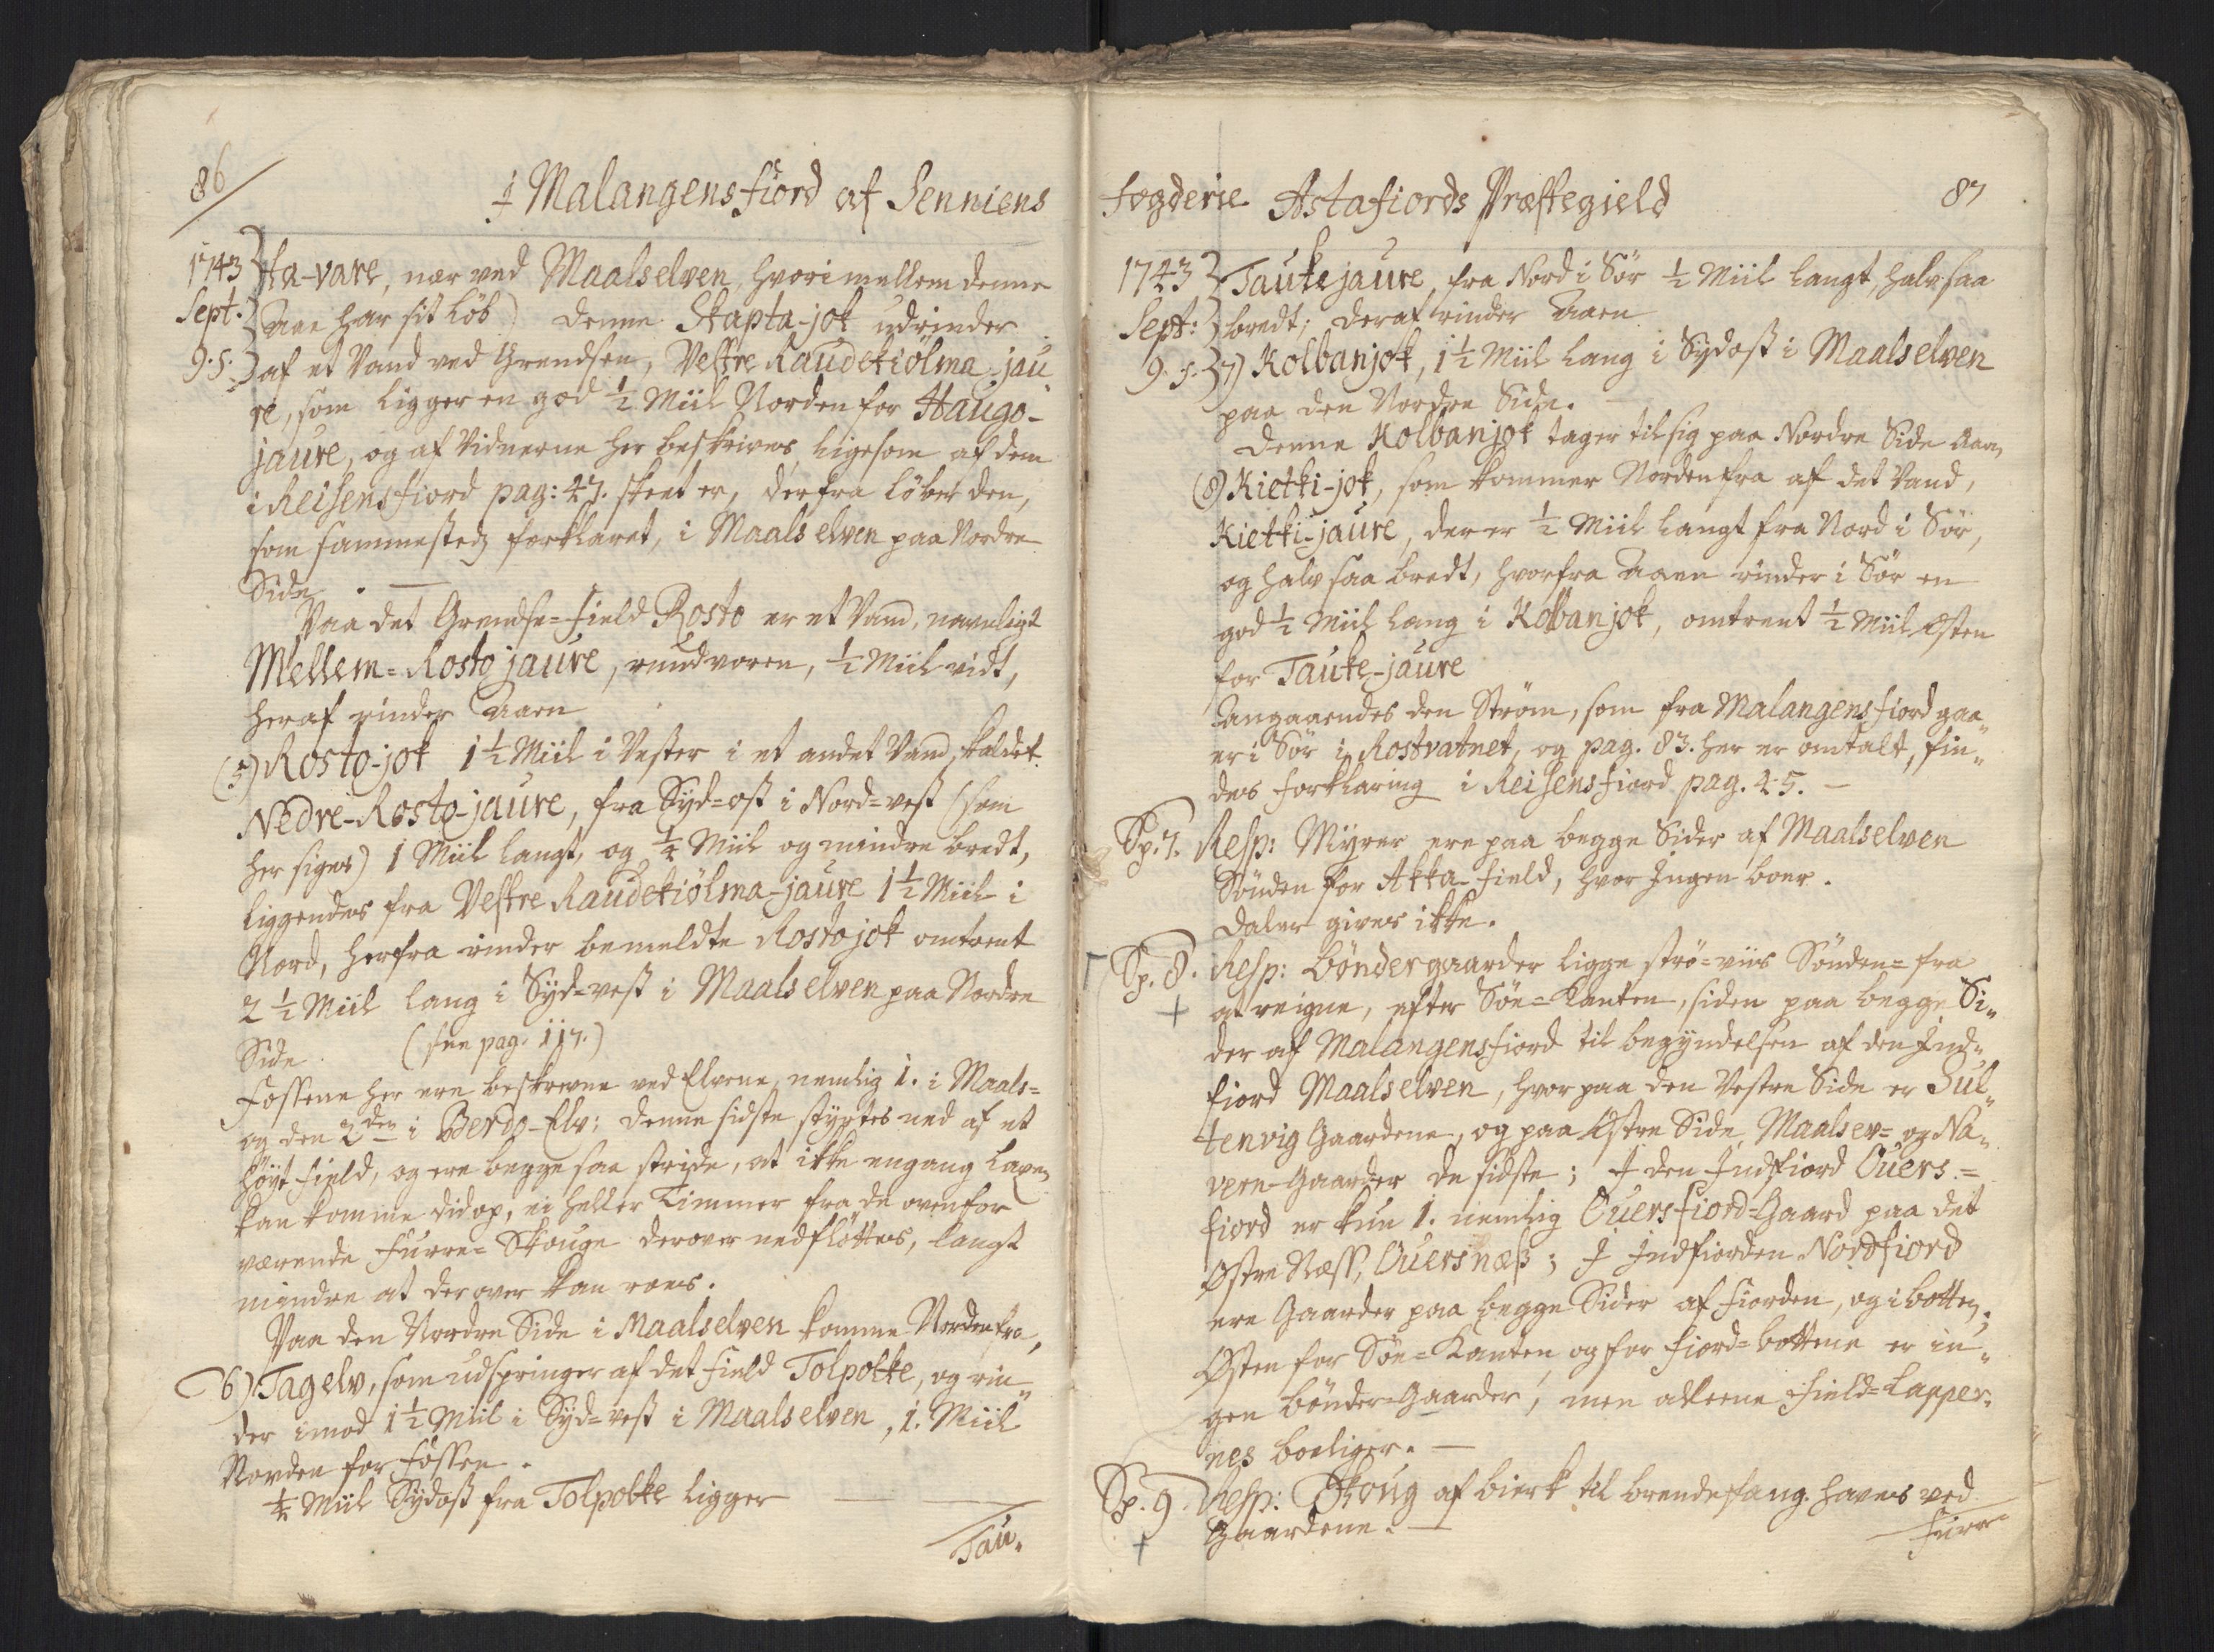 86
i Malangensfiord af Senniens
1743 ta-vare, nær ved Maalselven, hvorimellem denne
Sept. Aae har sit Løb) denne Skapta-jok udrinder
9. s. af et Vand ved Grendsen, Vestre Raudekiølma-jau
re, som ligger en god ½ Miil Norden for Haugo-
jaure, og af Vidnerne her beskrives ligesom af dem
i Reisensfiord pag: 47. skeet er, derfra løber den,
som sammesteds forklaret, i Maalselven paa Nordre
Side. —
Paa det Grendse-Field Rosto er et Vand, navnligt
Mellem-Rostojaure, rundvoren, ½ Miil vidt,
heraf rinder Aaen
(5) Rosto-jok 1½ Miil i Vester i et andet Vand, kaldet
Nedre-Rosto-jaure, fra Syd-ost i Nord-vest (som
her siges) 1 Miil langt, og ¼ Miil og mindre bredt,
liggendes fra Vestre Raudekiølma-jaure 1½ Miil i
Nord, herfra rinder bemeldte Rostojok omtrent
2½ Miil lang i Syd-vest i Maalselven paa Nordre
Side (see pag. 117.)
Fossene her ere beskrevne ved Elvene, nemlig 1. i Maals-
og den 2den i Berdo-Elv: denne sidste styrtes ned af et
høyt Field, og ere begge saa stride, at ikke engang Laxen
kan komme didop, ei heller Timmer fra de ovenfor
værende Furre-Skouge derover nedflottes, langt
mindre at derover kan roes.
Paa den Nordre Side i Maalselven komme Nordenfra,
6) Tagelv, som udspringer af det Field Tolpokke, og rin-
der imod 1½ Miil i Syd-vest i Maalselven, 1. Miil
Norden for Fossen.
¼ Miil Sydost fra Tolpokke ligger —
Tau-
Fogderie Astafiords Præstegield 87
1743 Taukejaure, fra Nord i Sør ½ Miil langt, halv saa
Sept: bredt; deraf rinder Aaen
9. s. 7) Kolbanjok, 1½ Miil lang i Sydost i Maalselven
paa den Nordre Side.
Denne Kolbanjok tager til sig paa Nordre Side Aaen
(8) Kietki-jok, som kommer Nordenfra af det Vand,
Kietki-jaure, der er ½ Miil langt fra Nord i Sør,
og halv saa bredt, hvorfra Aaen rinder i Sør en
god ½ Miil lang i Kolbanjok, omtrent ½ Miil Østen
for Tauke-jaure
Angaaendes den Strøm, som fra Malangensfiord gaa-
er i Sør i Rostvatnet, og pag. 83. her er omtalt, fin-
des forklaring i Reisensfiord pag. 45. —
Sp. 7. Resp: Myrer ere paa begge Sider af Maalselven
Sønden for Akka-Field, hvor Ingen boer.
Daler gives ikke.
Sp. 8. Resp: Bøndergaarder ligge strø-viis Sønden-fra
+ at reigne, efter Søe-Kanten, siden paa begge Si-
der af Malangensfiord til begyndelsen af den Ind-
fiord Maalselven, hvor paa den Vestre Side er Sul-
tenvig Gaardene, og paa Østre Side, Maalsev- og Na-
veren-Gaarder de sidste; I den Indfiord Ouers-
fiord er kun 1. nemlig Ouersfiord-Gaard paa det
Østre Næss, Ouersnæs; I Indfiorden Nordfiord
ere Gaarder paa begge Sider af Fiorden, og i botten;
Østen for Søe-Kanten og for Fiord-bottene er in-
gen Bønder-Gaarder, men alleene Field-Lapper-
nes boeliger. —
Sp. 9. Resp: Skoug af bierk til brendefang haves ved
+ Gaardene. —
Furre